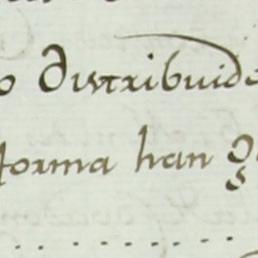 o distribuide
forma han